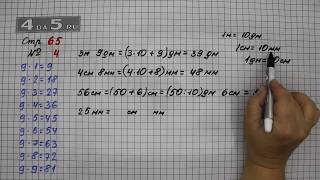 4 ДА 5
.RU
Стр 65
№ 4
9·1=9
9·2=18
9·3=27
9·4=36
9·5=45
9·6=54
9·7=63
9·8=72
9·9=81
1м=10дм
1см=10мм
1дм=10см
3м 9дм=(3·10+9)дм=39дм
4см 8мм=(4·10+8)мм=48мм
56см=(50+6)см=(50:10)дм 6см=
25мм= см мм